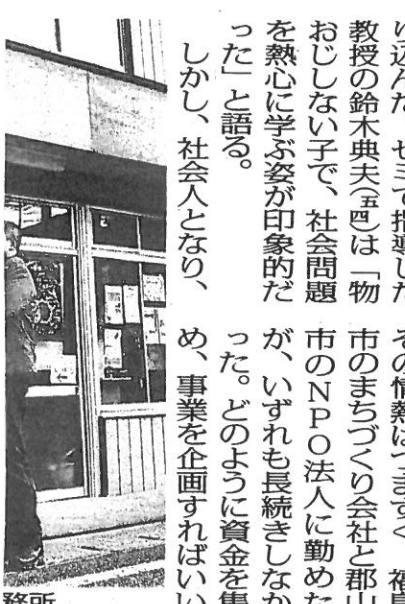 込んだ。ゼミで指導した
教授の鈴木典夫(五四)は「物
おじしない子で、社会問題
を熱心に学ぶ姿が印象的だ
った」と語る。
しかし、社会人となり、
その情熱はつまずく。福島
市のまちづくり会社と郡山
市のNPO法人に勤めた
が、いずれも長続きしなか
った。どのように資金を集
め、事業を企画すればいい
務所